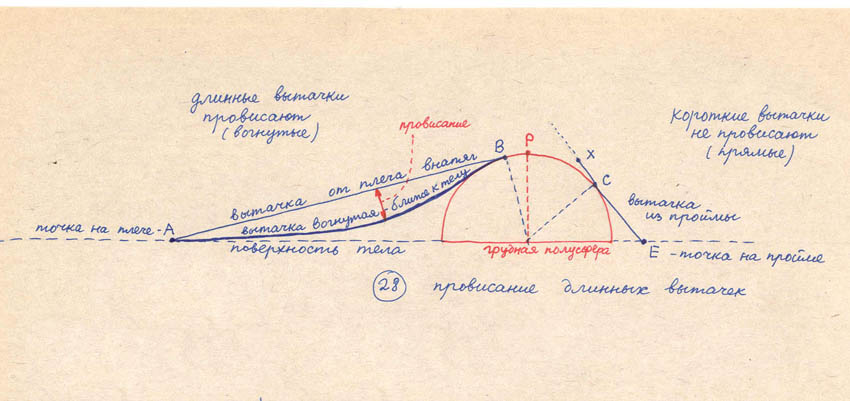 длинные вытачки
провисают
(вогнутые)
провисание
В
Р
короткие вытачки
не провисают
(прямые)
Х
С
вытачка от плеча внатяг
вытачка вогнутая - ближе к телу
вытачка
из проймы
точка на плече - А
поверхность тела
грудная полусфера
Е - точка на пройме
28 провисание длинных вытачек